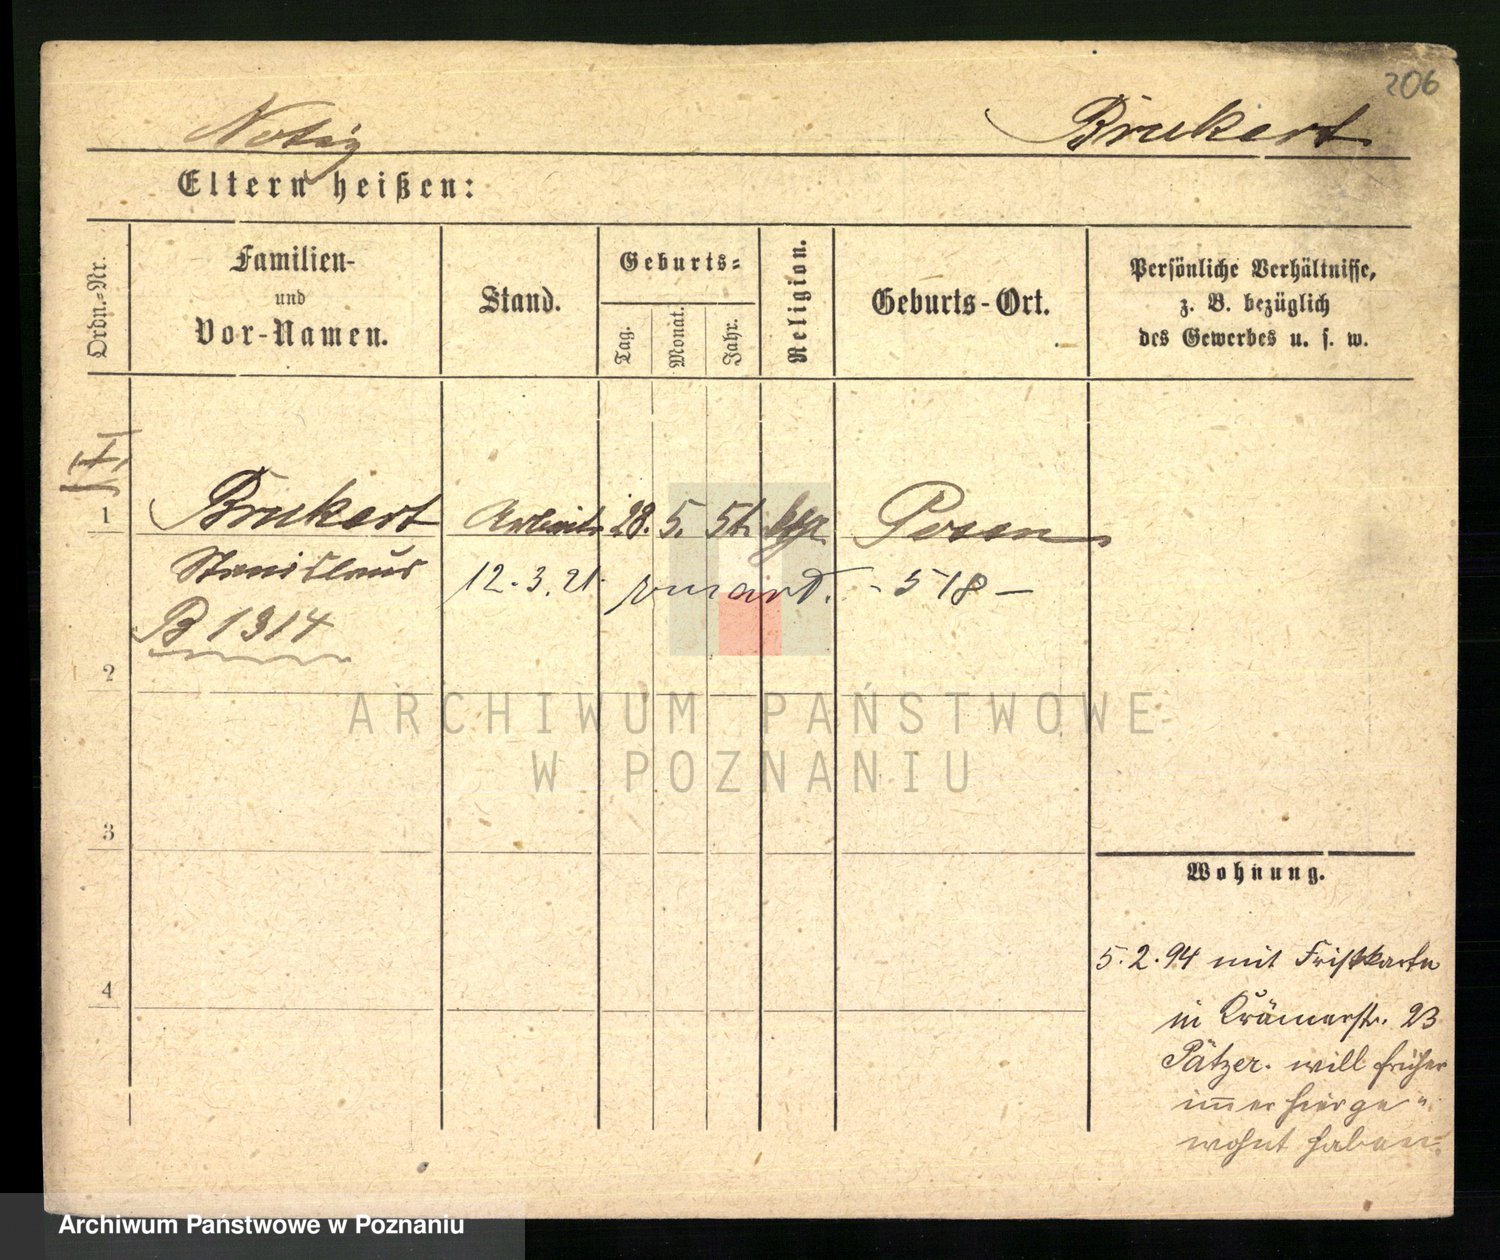 206
Notiz
Brukert
Eltern heißen:
Ordn.-Nr.
Familien-
und
Vor-Namen.
Stand.
Geburts-
Tag.
Monat.
Jahr.
Religion.
Geburts-Ort.
Persönliche Verhältnisse,
z. B. bezüglich
des Gewerbes u. s. w.
1 Brukert Arbeit. 28. 5. Posen
Stanislaus 12. 3. 21. - 518 -
B 1314
2
3
4
Wohnung.
5.2.94 mit Fristkarte
in Krämerstr. 23
Pätzer. will früher
immer hier ge„
wohnt haben.
ARCHIWUM PAŃSTWOWE
W POZNANIU
Archiwum Państwowe w Poznaniu